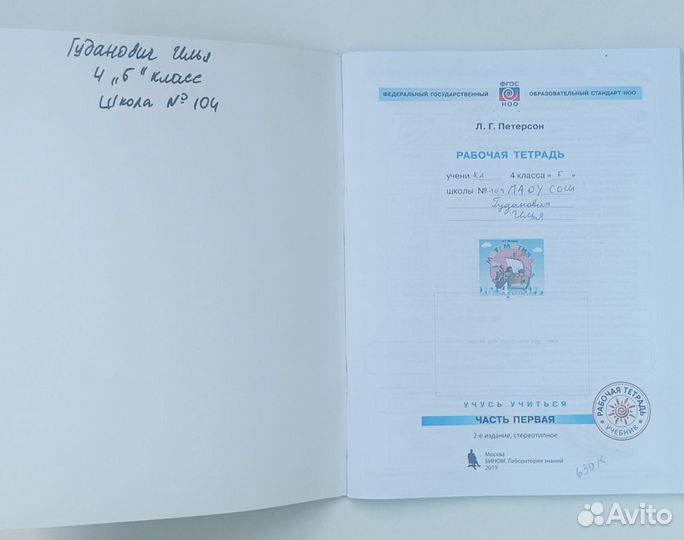 Гуданович Илья
4 „Б" класс
Школа № 104
ФГОС
НОО
ФЕДЕРАЛЬНЫЙ ГОСУДАРСТВЕННЫЙ ОБРАЗОВАТЕЛЬНЫЙ СТАНДАРТ НОО
Л. Г. Петерсон
РАБОЧАЯ ТЕТРАДЬ
учени ка 4 класса « Б »
школы № 104 МАОУ СОШ
Гуданович
Илья
МАТЕМАТИКА
4
УЧУСЬ УЧИТЬСЯ
ЧАСТЬ ПЕРВАЯ
2-е издание, стереотипное
РАБОЧАЯ ТЕТРАДЬ
УЧЕБНИК
Москва
БИНОМ. Лаборатория знаний
2019
Avito